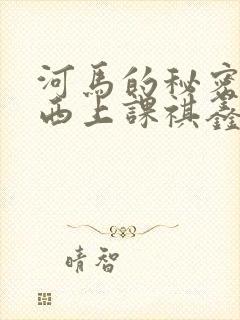 河馬的秘密
西上課祺鑫
晴智